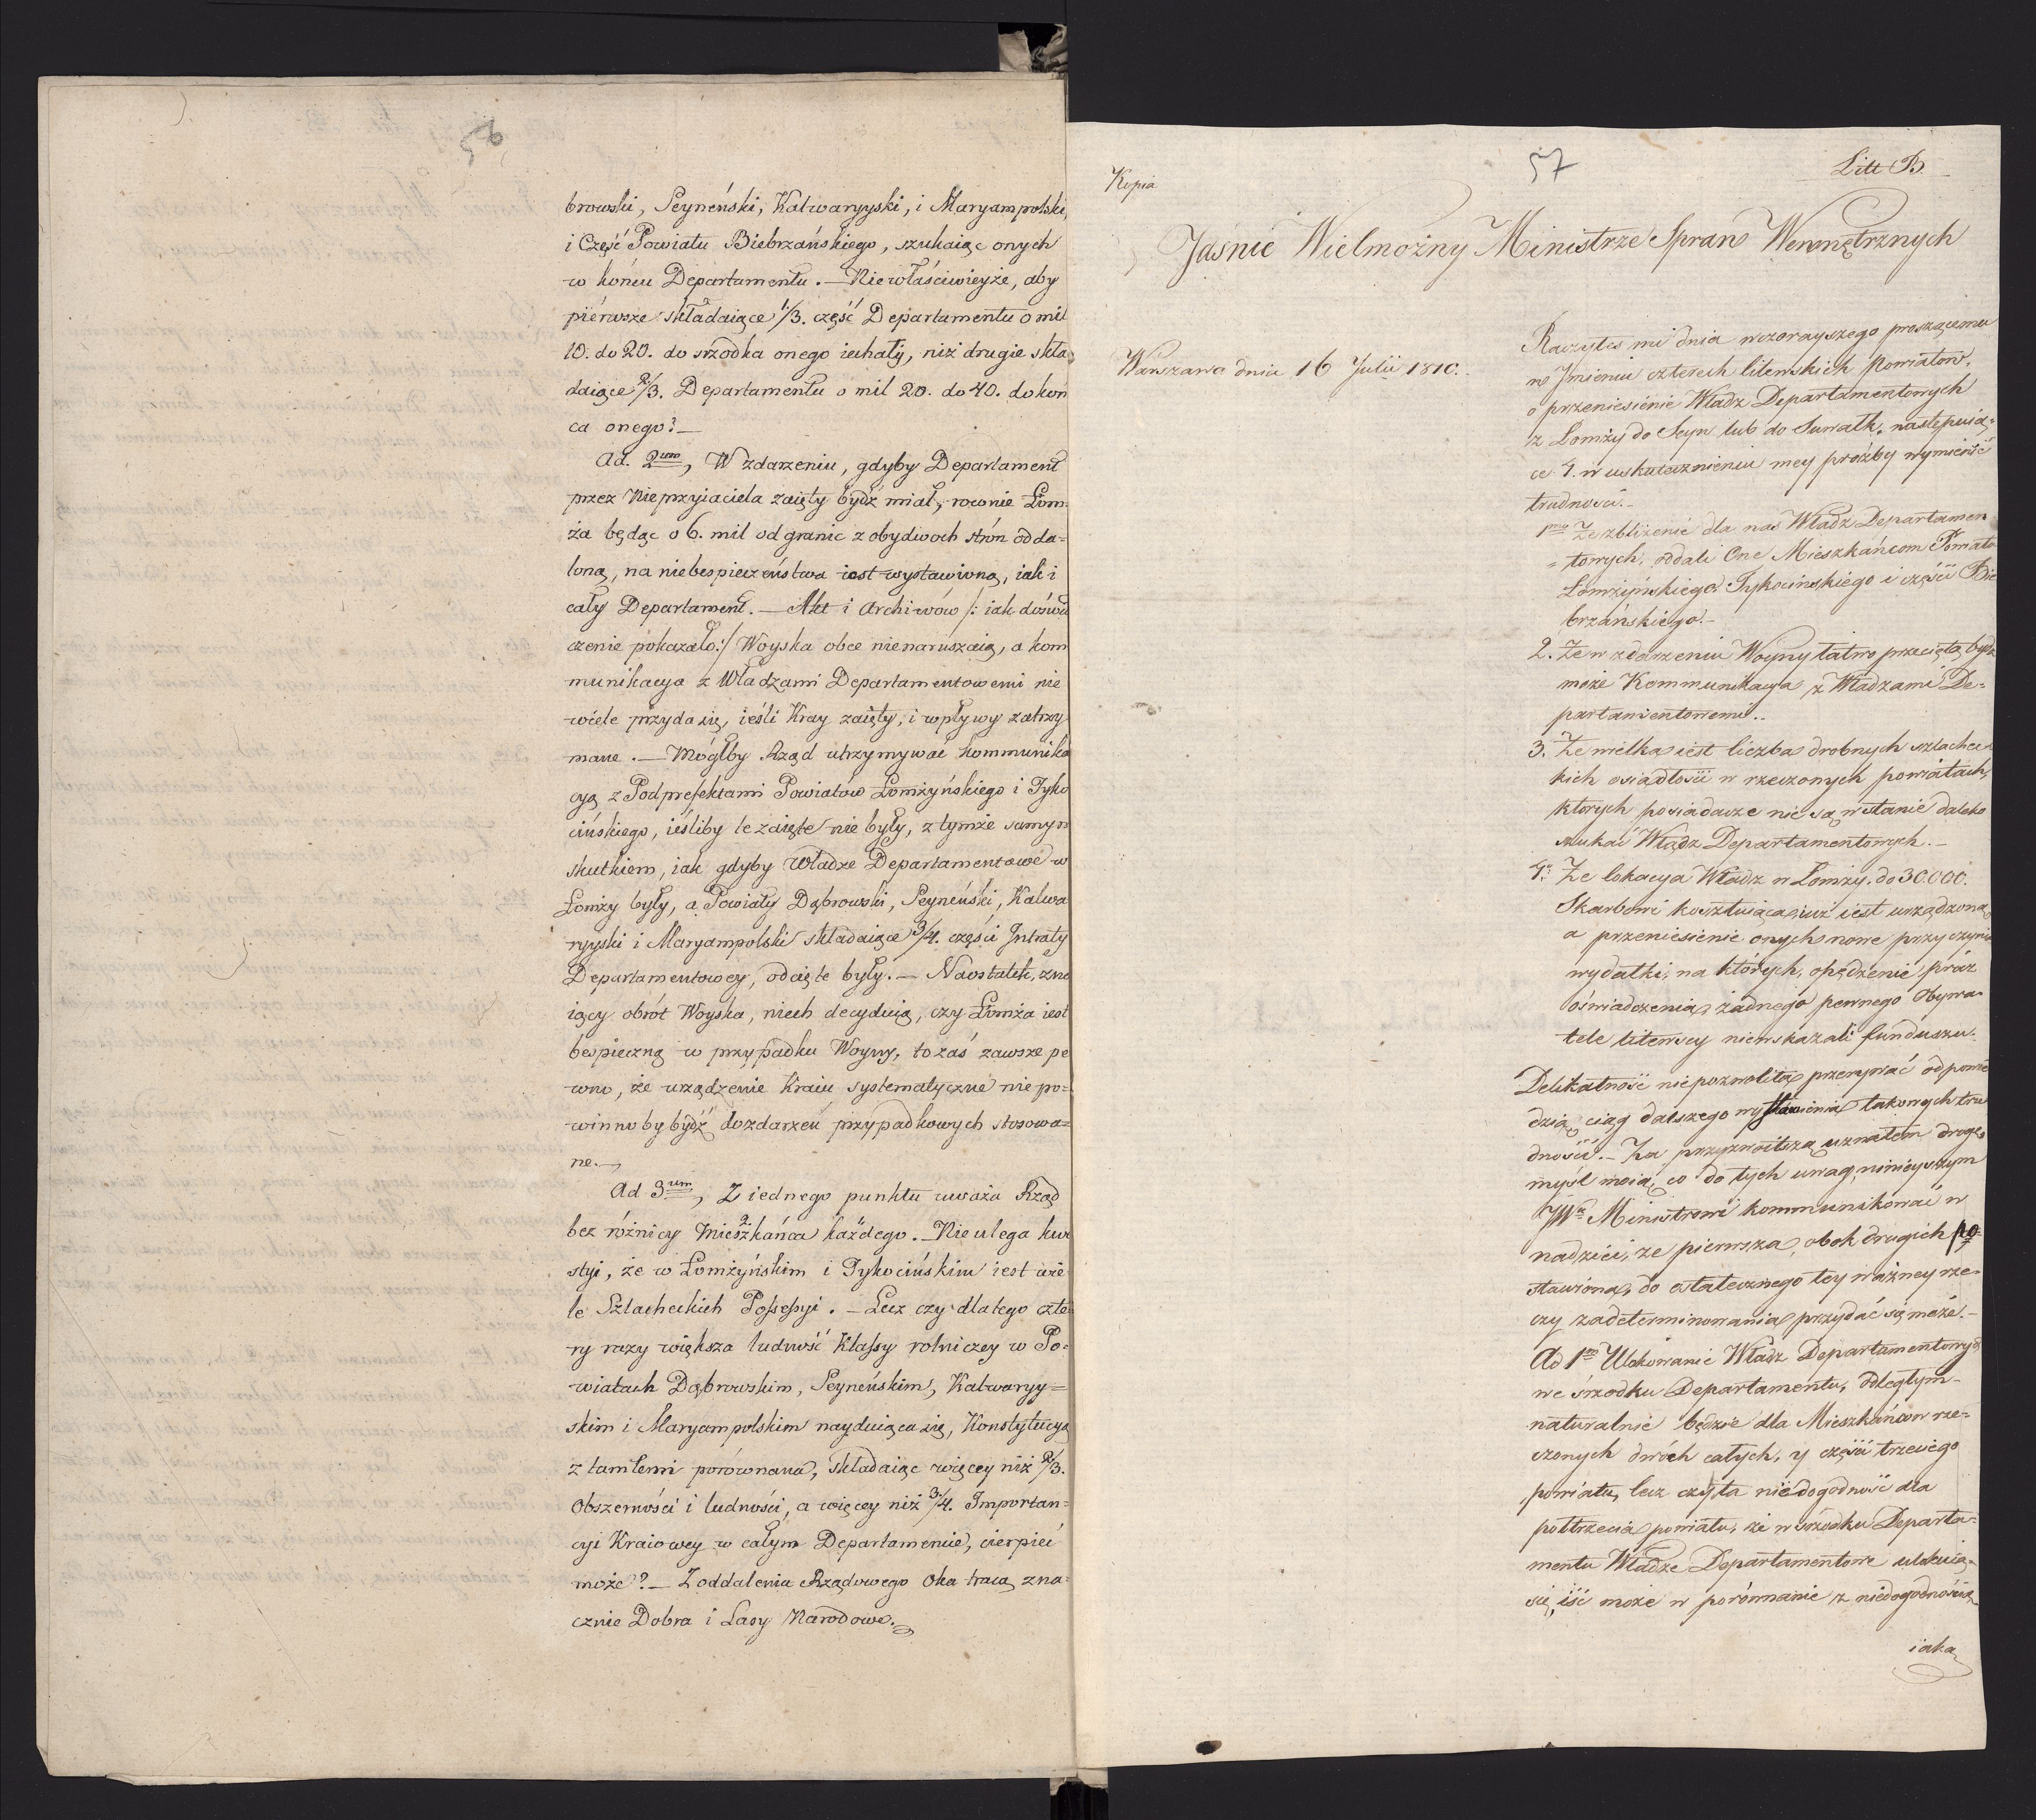 56
browski, Seyneński, Kalwaryyski, i Maryampolski,
i Część Powiatu Biebrzańskiego, szukaiąc onych
w końcu Departamentu. — Niewłaściwieyże, aby
piérwsze składaiące 1/3. część Departamentu o mil
10. do 20. do srzodka onego iechały, niż drugie skła
daiące 2/3. Departamentu o mil 20. do 40. do koń
ca onego? —
Ad. 2um, W zdarzeniu, gdyby Departament
przez Nieprzyiaciela zaięty bydź miał, rownie Łom=
ża będąc o 6. mil od granic z obydwoch strón odda=
loną, na niebespieczeństwa iest wystawioną, iak i
cały Departament. — Akt i Archiwów /: iak doświad
czenie pokazało :/ Woyska obce nienaruszaią, a kom
munikacya z Władzami Departamentowemi nie
wiele przyda się, ieśli Kray zaięty, i wpływy zatrzy
mane. — Mógłby Rząd utrzymywać kommunika
cyą z Podprefektami Powiatów Łomżyńskiego i Tyko
cińskiego, ieśliby te zaięte nie były, z tymże samym
skutkiem, iak gdyby Władze Departamentowe w
Łomży były, a Powiaty Dąbrowski, Seyneński, Kalwa
ryyski i Maryampolski składaiące 3/4. części Intraty
Departamentowey, odcięte były. — Naostatek, zna
iący obrót Woyska, niech decyduią, czy Łomża iest
bespieczną w przypadku Woyny, to zaś zawsze pe
wno, że urządzenie Kraiu systematyczne nie po=
winno by bydź do zdarzeń przypadkowych stosowa=
ne. —
Ad 3um, Z iednego punktu uważa Rząd
bez różnicy Mieszkańca każdego. — Nie ulega kwe
styi, że w Łomżyńskim i Tykocińskim iest wie
le Szlacheckich Possessyi. — Lecz czy dlatego czte
ry razy większa ludność Klassy rolniczey w Po=
wiatach Dąbrowskim, Seyneńskim, Kalwaryy=
skim i Maryampolskim nayduiąca się, Konstytucyą
z tamtemi porównana, składaiąc więcey niż 2/3.
Obszerności i ludności, a więcey niż 3/4. Importan=
cyi Kraiowey w całym Departamencie, cierpieć
może? — Z oddalenia Rządowego Oka tracą zna=
cznie Dobra i Lasy Narodowe.
57
Litt B.
Kopia
Jaśnie Wielmożny Ministrze Spraw Wewnętrznych
Warszawa dnia 16 Julii 1810.
Raczyłeś mi dnia wczorayszego proszącemu
w Imieniu czterech litewskich Powiatów,
o przeniesienie Władz Departamentowych
z Łomży do Seyn lub do Suwałk, następuią=
ce 4. w uskutecznieniu mey prośby wymienić
trudności. —
1mo Że zbliżenie dla nas Władz Departamen
=towych, oddali One Mieszkańcom Powiatu
Łomżyńskiego Tykocińskiego i części Bie
brzańskiego. —
2. Że w zdarzeniu Woyny łatwo przecięta bydź
może Kommunikacya z Władzami De=
partamentowemi. .
3. Że wielka iest liczba drobnych szlachec
kich osiadłości w rzeczonych powiatach,
których posiadacze nie są w stanie daleko
szukać Władz Departamentowych. —
4. Że lokacya Władz w Łomży, do 30.000.
Skarbowi kosztuiąca iuż iest urządzona,
a przeniesienie onych nowe przyczynia
wydatki, na których opędzenie próż
oświadczenia, żadnego pewnego Obywa=
tele litewscy niewskazali funduszu.
Delikatność niepozwoliła przerywać odpowie
dzią, ciąg dalszego wystawienia takowych tru
dności. — Za przyzwoitszą uznałem drogę,
myśl moią, co do tych uwag, ninieyszym
JWu Ministrowi kommunikować w
nadziei, że pierwsza, obok drugich po=
stawiona, do ostatecznego tey ważney rze=
czy zadeterminowania przydać się może. —
Ad 1mo Ulokowanie Władz Departamentowych
we śrzodku Departamentu, odległym
naturalnie będzie dla Mieszkańcow rze=
czonych dwóch całych, y części trzeciego
powiatu, lecz czyż ta niedogodność dla
półtrzecia powiatu, że w śrzodku Departa=
mentu Władze Departamentowe ulokuią
się, iść może w porównanie z niedogodnością
iaka